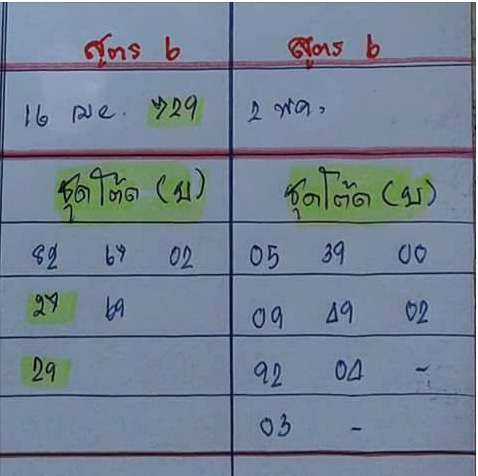 สูตร ๖ สูตร ๖
16 เมย. 729 2 พค.
ชุดโต๊ด (บ) ชุดโต๊ด (บ)
82 67 02 05 39 00
27 69 09 49 02
29 92 04 -
03 -